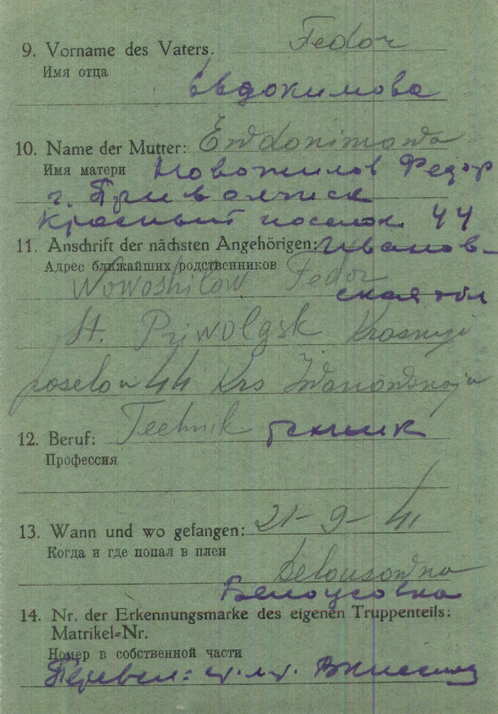 9. Vorname des Vaters. Fedor
Имя отца
Евдокимова
10. Name der Mutter: Ewdonimowa
Имя матери Новожилов Федор
г. Приволжск
Красный поселок 44
11. Anschrift der nächsten Angehörigen: Иванов-
Адрес ближайших родственников
Wowoshilow Fedor
ская обл
St. Priwolgsk Krasnyj
poselon 44 Krs Iwanowsnaja
12. Beruf: Technik техник
Профессия
13. Wann und wo gefangen: 21-9-41
Когда и где попал в плен
Belousowna
Белоусовка
14. Nr. der Erkennungsmarke des eigenen Truppenteils:
Matrikel=Nr.
Номер в собственной части
Перевел: